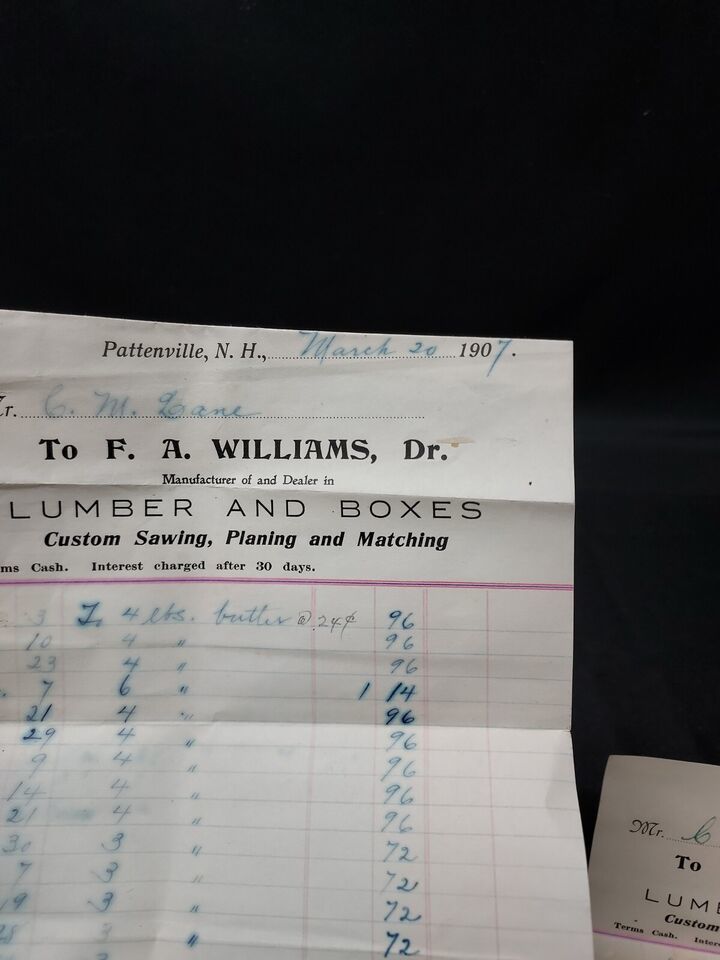 Pattenville, N. H., March 20 1907.
Mr. C. M. Lane
To F. A. WILLIAMS, Dr.
Manufacturer of and Dealer in
LUMBER AND BOXES
Custom Sawing, Planing and Matching
ms Cash. Interest charged after 30 days.
3 To 4 lbs. butter @ .24¢ 96
10 4 " 96
23 4 " 96
7 6 " 1 14
21 4 " 96
29 4 " 96
9 4 " 96
14 4 " 96
21 4 " 96
30 3 " 72
7 3 " 72
19 3 " 72
28 3 " 72
3
Mr. C
To
LUMB
Custom
Terms Cash. Inter